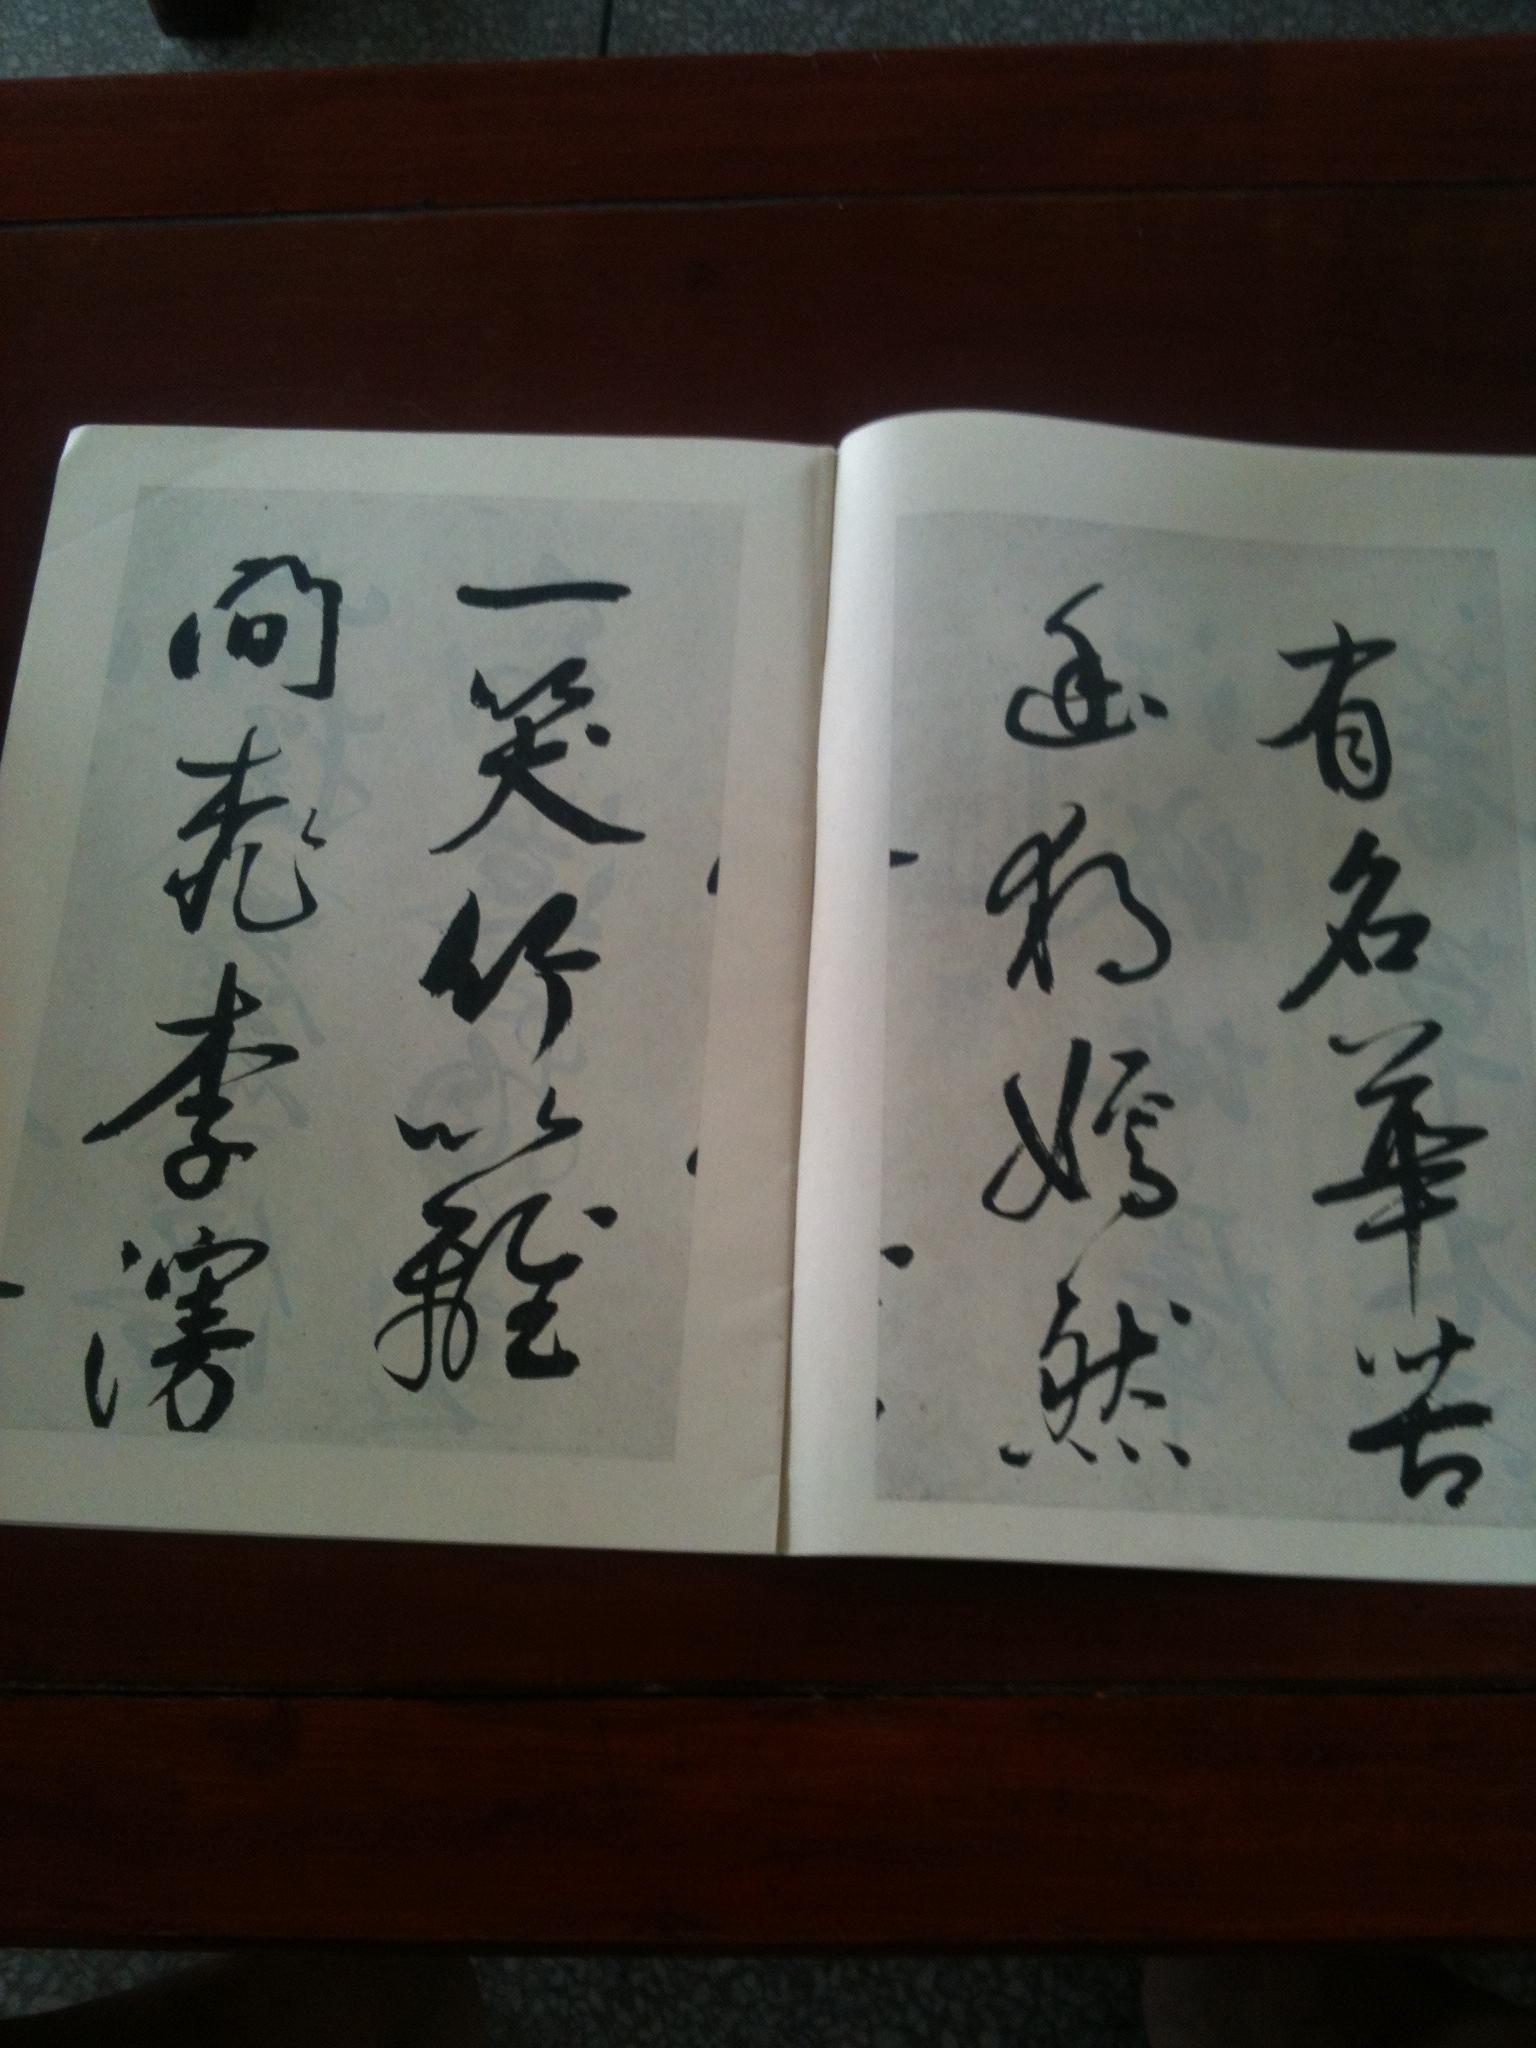 有名華苦
幽獨嫣然
一笑竹籬
間桃李漫